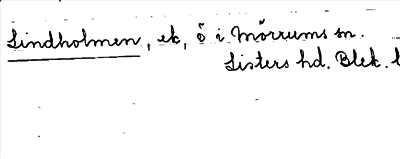 Lindholmen, ek, ö i Mörrums sn.
Listers hd. Blek. l